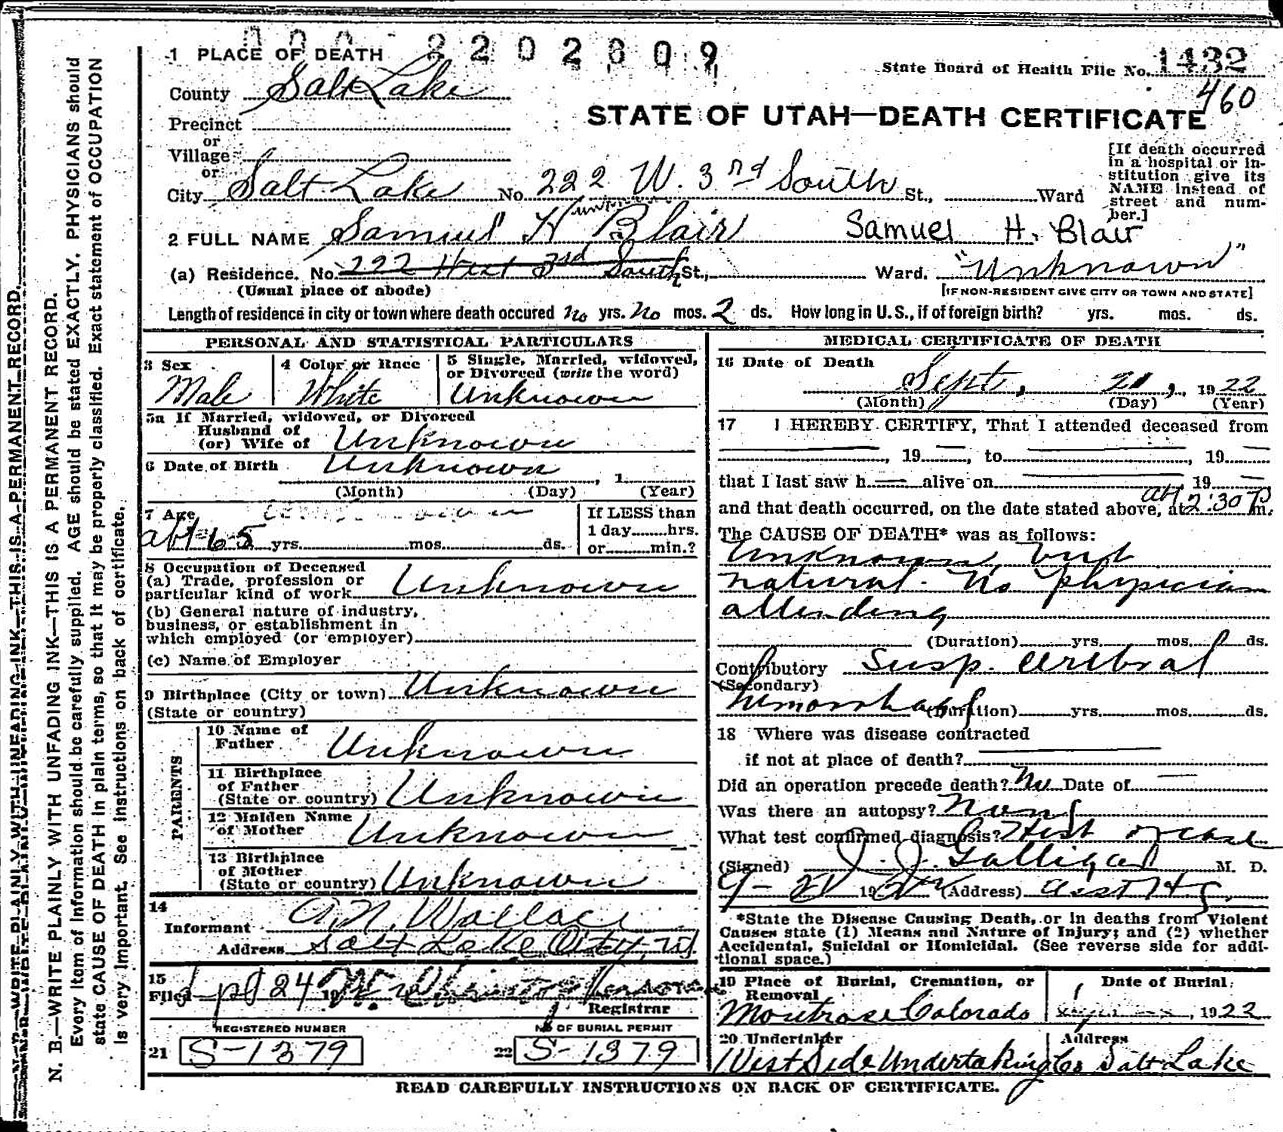 000 2202609
1 PLACE OF DEATH
State Board of Health File No. 1432
460
County Salt Lake
STATE OF UTAH—DEATH CERTIFICATE
Precinct
or
Village
or
City Salt Lake No. 222 W. 3rd South St., Ward
[If death occurred in a hospital or institution give its NAME instead of street and number.]
2 FULL NAME Samuel H Blair Samuel H. Blair
(a) Residence. No. 222 West 3rd South St., Ward. "Unknown"
(Usual place of abode) [IF NON-RESIDENT GIVE CITY OR TOWN AND STATE]
Length of residence in city or town where death occured No yrs. No mos. 2 ds. How long in U.S., if of foreign birth? yrs. mos. ds.
PERSONAL AND STATISTICAL PARTICULARS
3 Sex
Male
4 Color or Race
White
5 Single, Married, widowed,
or Divorced (write the word)
Unknown
5a If Married, widowed, or Divorced
Husband of
(or) Wife of Unknown
6 Date of Birth Unknown, 1
(Month) (Day) (Year)
7 Age
abt 65 yrs. mos. ds.
If LESS than
1 day hrs.
or min.?
8 Occupation of Deceased
(a) Trade, profession or
particular kind of work Unknown
(b) General nature of industry,
business, or establishment in
which employed (or employer)
(c) Name of Employer
9 Birthplace (City or town) Unknown
(State or country)
PARENTS
10 Name of
Father Unknown
11 Birthplace
of Father
(State or country) Unknown
12 Maiden Name
of Mother Unknown
13 Birthplace
of Mother
(State or country) Unknown
14
Informant A.N. Wallace
Address Salt Lake City, Ut
15
Filed 24 19
Registrar
REGISTERED NUMBER
21 S-1379
No OF BURIAL PERMIT
22 S-1379
MEDICAL CERTIFICATE OF DEATH
16 Date of Death
Sept, 21, 1922
(Month) (Day) (Year)
17 I HEREBY CERTIFY, That I attended deceased from
, 19 , to , 19
that I last saw h alive on 19
and that death occurred, on the date stated above, at 2:30 P.m.
The CAUSE OF DEATH* was as follows:
Unknown but
natural. No physician
attending
(Duration) yrs. mos. ds.
Contributory Susp. cerebral
(Secondary)
hemorrhage (Duration) yrs. mos. ds.
18 Where was disease contracted
if not at place of death?
Did an operation precede death? No Date of
Was there an autopsy? None
What test confirmed diagnosis? Hist of case
(Signed) J. J. Galligan M. D.
9-21 1922 (Address) Asst H.
*State the Disease Causing Death, or in deaths from Violent
Causes state (1) Means and Nature of Injury; and (2) whether
Accidental, Suicidal or Homicidal. (See reverse side for addi-
tional space.)
19 Place of Burial, Cremation, or
Removal
Montrose Colorado
Date of Burial
, 1922
20 Undertaker
West Side Undertaking Co
Address
Salt Lake
READ CAREFULLY INSTRUCTIONS ON BACK OF CERTIFICATE.
N. B.—WRITE PLAINLY WITH UNFADING INK—THIS IS A PERMANENT RECORD.
Every item of information should be carefully supplied. AGE should be stated EXACTLY. PHYSICIANS should
state CAUSE OF DEATH in plain terms, so that it may be properly classified. Exact statement of OCCUPATION
is very important. See instructions on back of certificate.